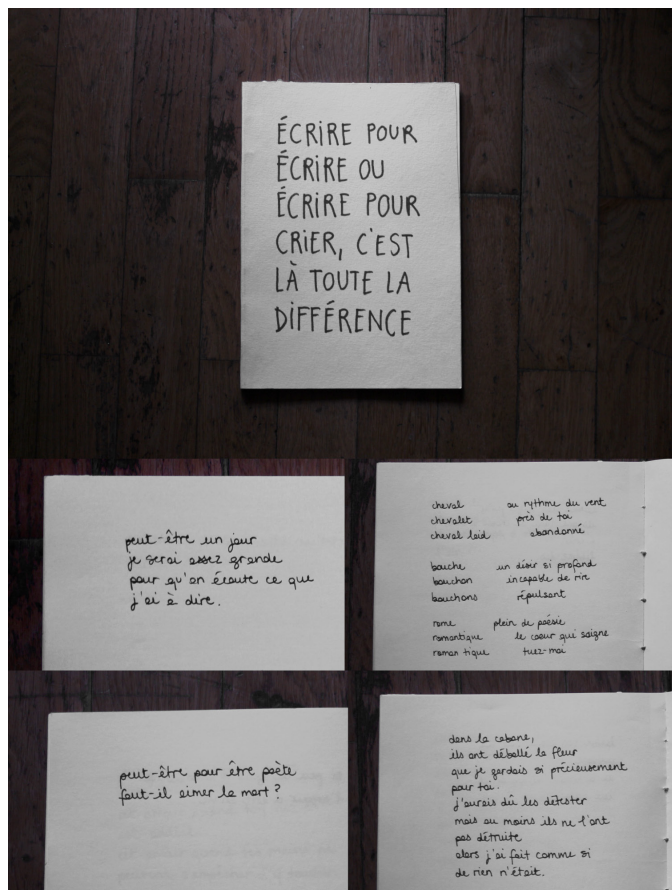 ÉCRIRE POUR
ÉCRIRE OU
ÉCRIRE POUR
CRIER, C'EST
LÀ TOUTE LA
DIFFÉRENCE
peut-être un jour
je serai assez grande
pour qu'on écoute ce que
j'ai à dire.
cheval au rythme du vent
chevalet près de toi
cheval laid abandonné
bouche un désir si profond
bouchon incapable de rire
bouchons répulsant
rome plein de poésie
romantique le coeur qui saigne
roman tique tuez-moi
peut-être pour être poète
faut-il aimer la mort ?
dans la cabane,
ils ont déballé la fleur
que je gardais si précieusement
pour toi.
j'aurais dû les détester
mais au moins ils ne l'ont
pas détruite
alors j'ai fait comme si
de rien n'était.